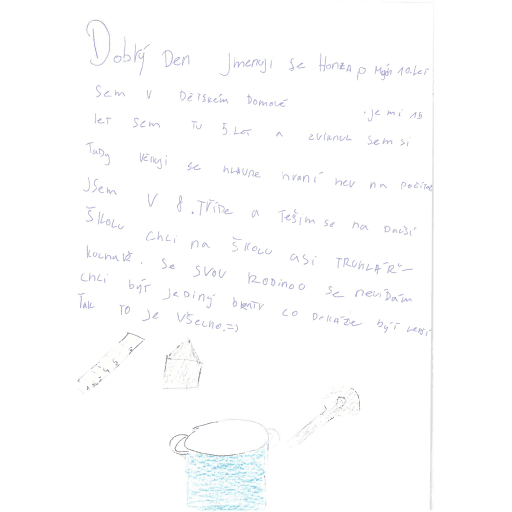 Dobrý Den Jmenuji se Honza
sem v Dětském Domově . je mi 15
let sem tu 5 let a zviknul sem si
Tady věnuji se hlavne hraní her na počítač
Jsem v 8. Tříde a Tešim se na Další
Školu chci na Školu asi TRUHLÁŘ-
kuchař. Se svou Rodinou se nevídám
chci být jediný co Dokáže být lepší
Tak to je všechno.=)
1 2 3 4 5